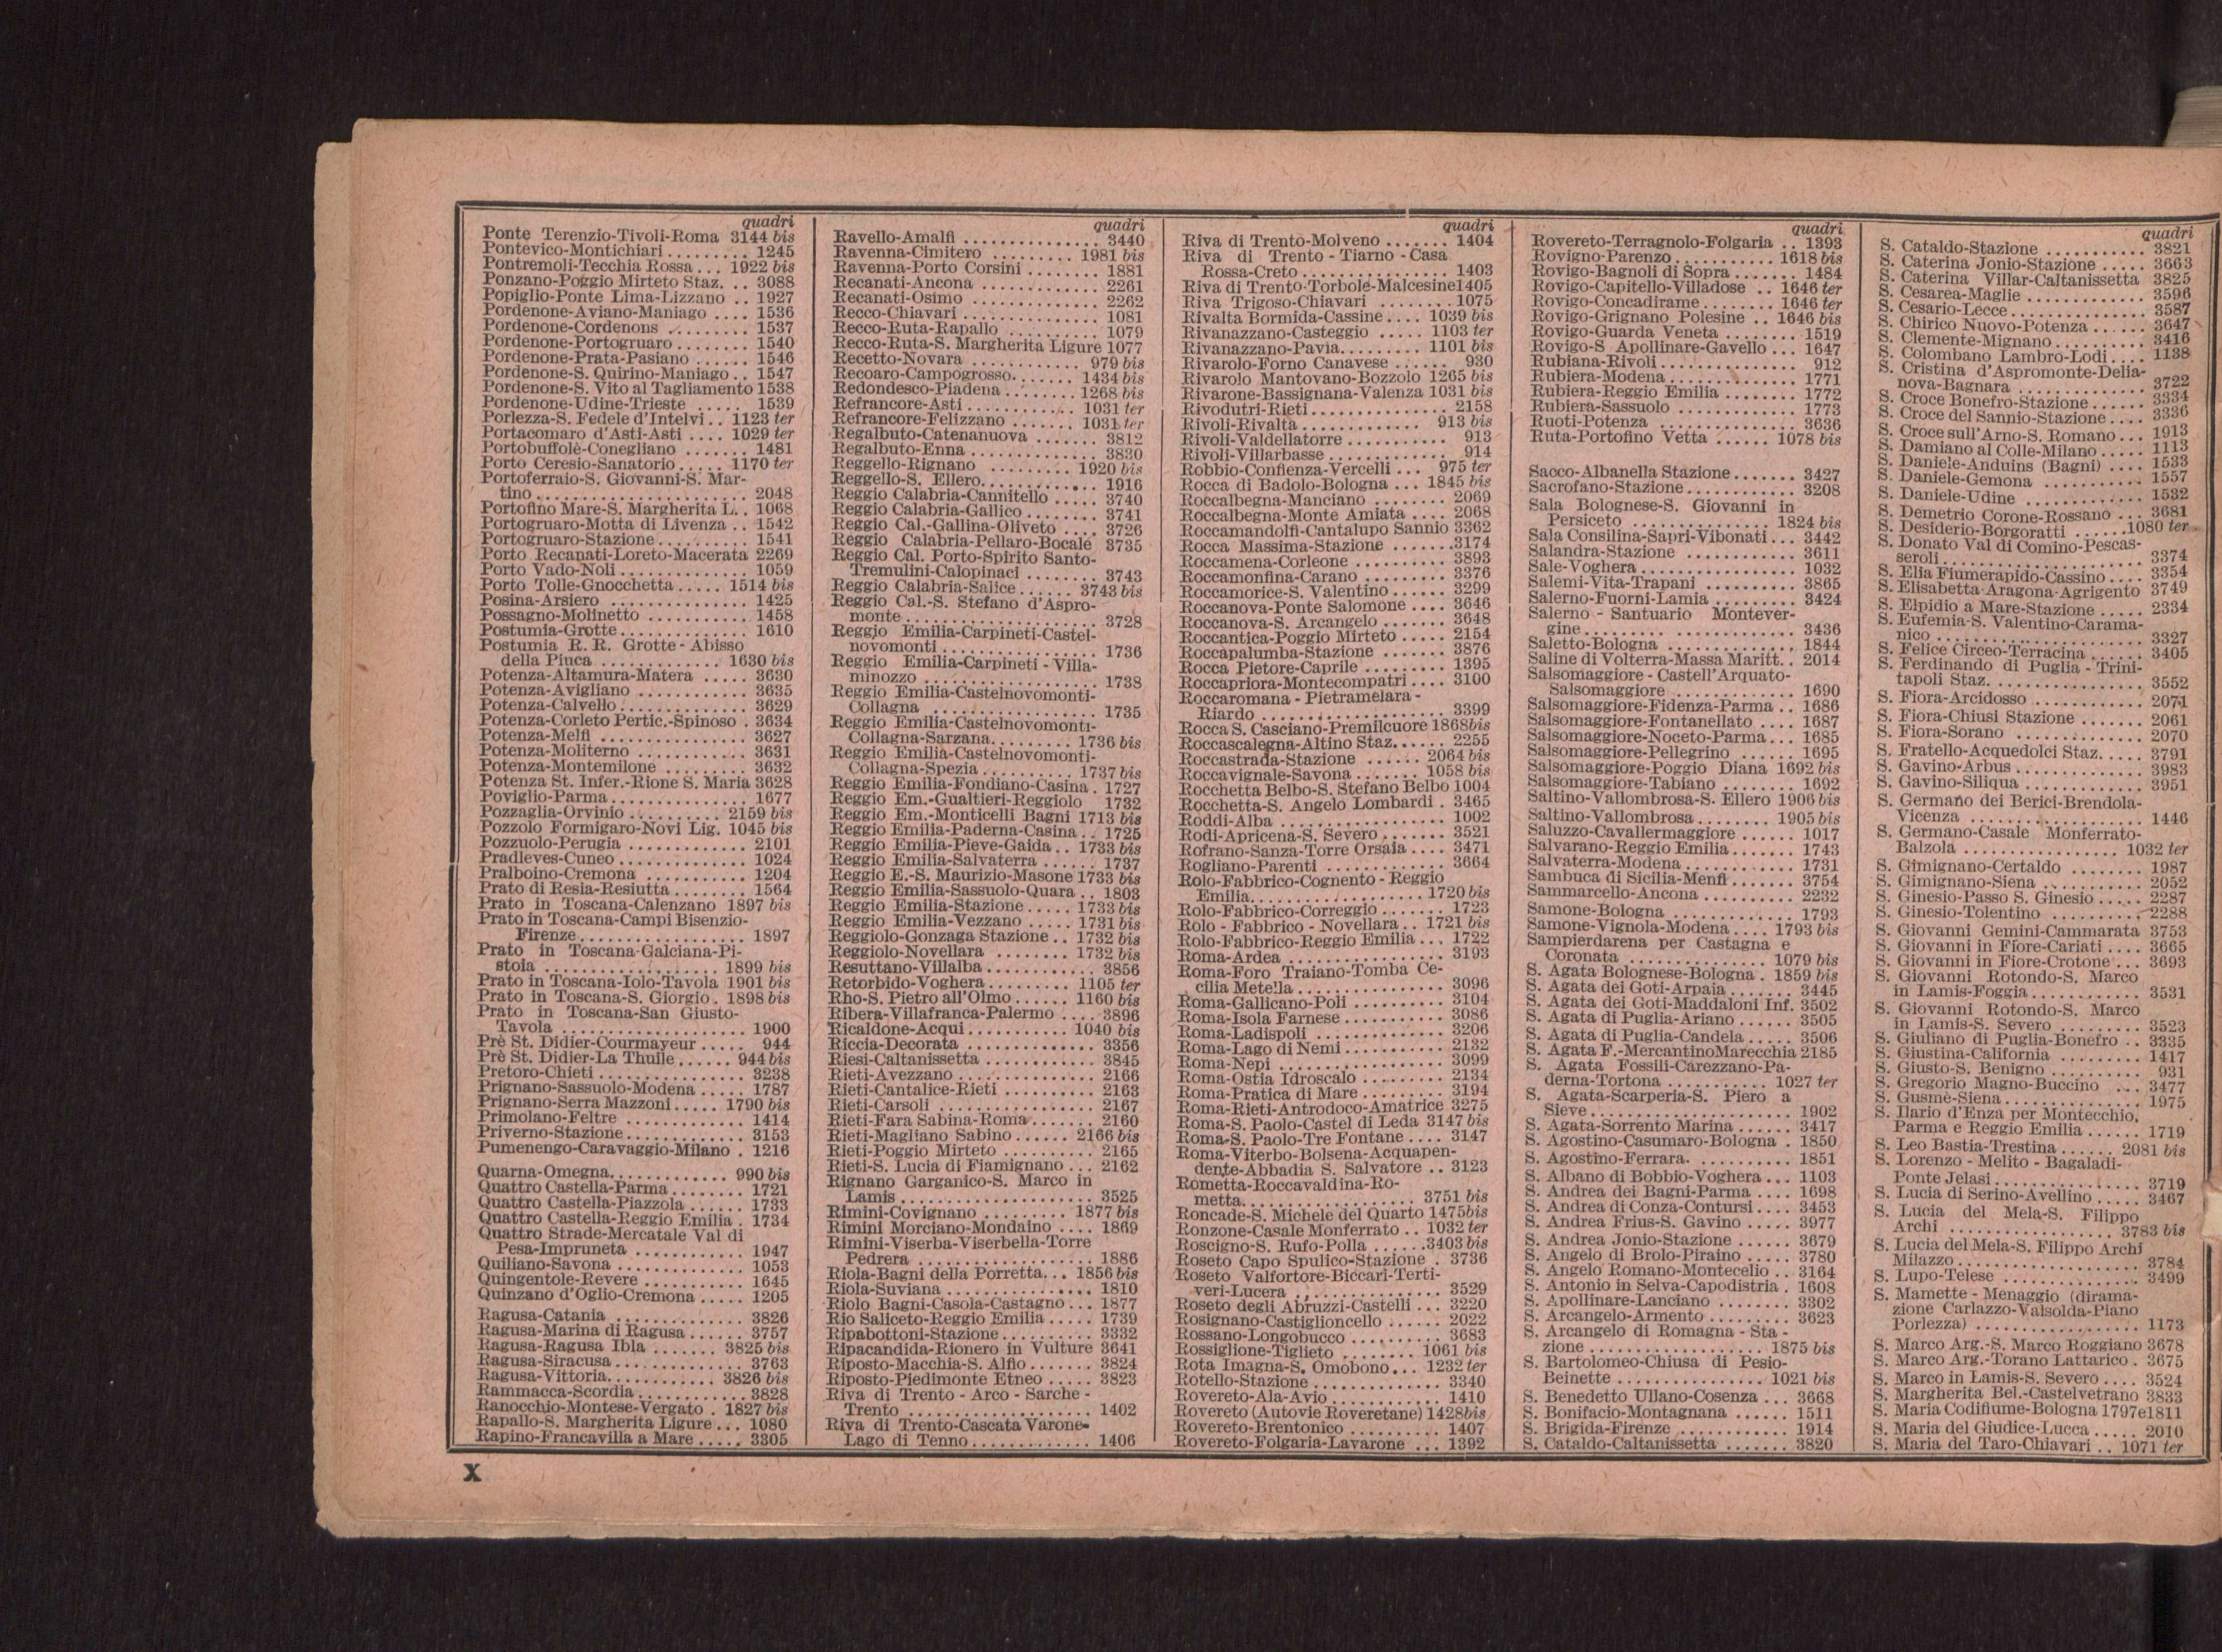 quadri
Ponte Terenzio-Tivoli-Roma 3144 bis
Pontevico-Montichiari ......... 1245
Pontremoli-Tecchia Rossa ... 1922 bis
Ponzano-Poggio Mirteto Staz. .. 3088
Popiglio-Ponte Lima-Lizzano .. 1927
Pordenone-Aviano-Maniago .... 1536
Pordenone-Cordenons ......... 1537
Pordenone-Portogruaro ........ 1540
Pordenone-Prata-Pasiano ...... 1546
Pordenone-S. Quirino-Maniago .. 1547
Pordenone-S. Vito al Tagliamento 1538
Pordenone-Udine-Trieste ..... 1539
Porlezza-S. Fedele d'Intelvi .. 1123 ter
Portacomaro d'Asti-Asti .... 1029 ter
Portobuffolè-Conegliano ....... 1481
Porto Ceresio-Sanatorio ..... 1170 ter
Portoferraio-S. Giovanni-S. Mar-
tino ....................... 2048
Portofino Mare-S. Margherita L. . 1068
Portogruaro-Motta di Livenza .. 1542
Portogruaro-Stazione .......... 1541
Porto Recanati-Loreto-Macerata 2269
Porto Vado-Noli ............. 1059
Porto Tolle-Gnocchetta ..... 1514 bis
Posina-Arsiero .............. 1425
Possagno-Molinetto ........... 1458
Postumia-Grotte ............. 1610
Postumia R. R. Grotte - Abisso
della Piuca ............ 1630 bis
Potenza-Altamura-Matera ..... 3630
Potenza-Avigliano ........... 3635
Potenza-Calvello ............. 3629
Potenza-Corleto Pertic.-Spinoso . 3634
Potenza-Melfi ............... 3627
Potenza-Moliterno ........... 3631
Potenza-Montemilone ......... 3632
Potenza St. Infer.-Rione S. Maria 3628
Poviglio-Parma ............... 1677
Pozzaglia-Orvinio .......... 2159 bis
Pozzolo Formigaro-Novi Lig. 1045 bis
Pozzuolo-Perugia ............ 2101
Pradleves-Cuneo ............. 1024
Pralboino-Cremona ........... 1204
Prato di Resia-Resiutta ........ 1564
Prato in Toscana-Calenzano 1897 bis
Prato in Toscana-Campi Bisenzio-
Firenze ................. 1897
Prato in Toscana-Galciana-Pi-
stoia .................. 1899 bis
Prato in Toscana-Iolo-Tavola 1901 bis
Prato in Toscana-S. Giorgio . 1898 bis
Prato in Toscana-San Giusto-
Tavola ................... 1900
Prè St. Didier-Courmayeur ..... 944
Prè St. Didier-La Thuile ...... 944 bis
Pretoro-Chieti ............... 3238
Prignano-Sassuolo-Modena ..... 1787
Prignano-Serra Mazzoni ..... 1790 bis
Primolano-Feltre ............. 1414
Priverno-Stazione ............ 3153
Pumenengo-Caravaggio-Milano . 1216
Quarna-Omegna ............ 990 bis
Quattro Castella-Parma ........ 1721
Quattro Castella-Piazzola ...... 1733
Quattro Castella-Reggio Emilia . 1734
Quattro Strade-Mercatale Val di
Pesa-Impruneta ........... 1947
Quiliano-Savona ............. 1053
Quingentole-Revere .......... 1645
Quinzano d'Oglio-Cremona ..... 1205
Ragusa-Catania .............. 3826
Ragusa-Marina di Ragusa ...... 3757
Ragusa-Ragusa Ibla ....... 3825 bis
Ragusa-Siracusa ............. 3763
Ragusa-Vittoria ........... 3826 bis
Rammacca-Scordia ........... 3828
Ranocchio-Montese-Vergato . 1827 bis
Rapallo-S. Margherita Ligure ... 1080
Rapino-Francavilla a Mare ..... 3305
quadri
Ravello-Amalfi .............. 3440
Ravenna-Cimitero ......... 1981 bis
Ravenna-Porto Corsini ........ 1881
Recanati-Ancona ............. 2261
Recanati-Osimo ............. 2262
Recco-Chiavari .............. 1081
Recco-Ruta-Rapallo .......... 1079
Recco-Ruta-S. Margherita Ligure 1077
Recetto-Novara ........... 979 bis
Recoaro-Campogrosso ....... 1434 bis
Redondesco-Piadena ........ 1268 bis
Refrancore-Asti ........... 1031 ter
Refrancore-Felizzano ....... 1031 ter
Regalbuto-Catenanuova ....... 3812
Regalbuto-Enna ............. 3830
Reggello-Rignano ......... 1920 bis
Reggello-S. Ellero ............ 1916
Reggio Calabria-Cannitello ..... 3740
Reggio Calabria-Gallico ........ 3741
Reggio Cal.-Gallina-Oliveto .... 3726
Reggio Calabria-Pellaro-Bocale 3735
Reggio Cal. Porto-Spirito Santo-
Tremulini-Calopinaci ........ 3743
Reggio Calabria-Salice ...... 3743 bis
Reggio Cal.-S. Stefano d'Aspro-
monte .................... 3728
Reggio Emilia-Carpineti-Castel-
novomonti ................ 1736
Reggio Emilia-Carpineti - Villa-
minozzo .................. 1738
Reggio Emilia-Castelnovomonti-
Collagna ................. 1735
Reggio Emilia-Castelnovomonti-
Collagna-Sarzana ......... 1736 bis
Reggio Emilia-Castelnovomonti-
Collagna-Spezia .......... 1737 bis
Reggio Emilia-Fondiano-Casina . 1727
Reggio Em.-Gualtieri-Reggiolo 1732
Reggio Em.-Monticelli Bagni 1713 bis
Reggio Emilia-Paderna-Casina .. 1725
Reggio Emilia-Pieve-Gaida .. 1733 bis
Reggio Emilia-Salvaterra ...... 1737
Reggio E.-S. Maurizio-Masone 1733 bis
Reggio Emilia-Sassuolo-Quara .. 1803
Reggio Emilia-Stazione ..... 1733 bis
Reggio Emilia-Vezzano ..... 1731 bis
Reggiolo-Gonzaga Stazione .. 1732 bis
Reggiolo-Novellara ........ 1732 bis
Resuttano-Villalba ............ 3856
Retorbido-Voghera ......... 1105 ter
Rho-S. Pietro all'Olmo ...... 1160 bis
Ribera-Villafranca-Palermo .... 3896
Ricaldone-Acqui ........... 1040 bis
Riccia-Decorata .............. 3356
Riesi-Caltanissetta ............ 3845
Rieti-Avezzano .............. 2166
Rieti-Cantalice-Rieti .......... 2163
Rieti-Carsoli ................ 2167
Rieti-Fara Sabina-Roma ....... 2160
Rieti-Magliano Sabino ...... 2166 bis
Rieti-Poggio Mirteto .......... 2165
Rieti-S. Lucia di Fiamignano ... 2162
Rignano Garganico-S. Marco in
Lamis .................... 3525
Rimini-Covignano ......... 1877 bis
Rimini Morciano-Mondaino .... 1869
Rimini-Viserba-Viserbella-Torre
Pedrera .................. 1886
Riola-Bagni della Porretta ... 1856 bis
Riola-Suviana ............... 1810
Riolo Bagni-Casola-Castagno ... 1877
Rio Saliceto-Reggio Emilia ..... 1739
Ripabottoni-Stazione .......... 3332
Ripacandida-Rionero in Vulture 3641
Riposto-Macchia-S. Alfio ....... 3824
Riposto-Piedimonte Etneo ..... 3823
Riva di Trento - Arco - Sarche -
Trento ................... 1402
Riva di Trento-Cascata Varone-
Lago di Tenno ............ 1406
quadri
Riva di Trento-Molveno ....... 1404
Riva di Trento - Tiarno - Casa
Rossa-Creto ............... 1403
Riva di Trento-Torbole-Malcesine1405
Riva Trigoso-Chiavari ........ 1075
Rivalta Bormida-Cassine .... 1039 bis
Rivanazzano-Casteggio ..... 1103 ter
Rivanazzano-Pavia ......... 1101 bis
Rivarolo-Forno Canavese ...... 930
Rivarolo Mantovano-Bozzolo 1265 bis
Rivarone-Bassignana-Valenza 1031 bis
Rivodutri-Rieti ............... 2158
Rivoli-Rivalta ............. 913 bis
Rivoli-Valdellatorre ........... 913
Rivoli-Villarbasse ............ 914
Robbio-Confienza-Vercelli ... 975 ter
Rocca di Badolo-Bologna ... 1845 bis
Roccalbegna-Manciano ........ 2069
Roccalbegna-Monte Amiata .... 2068
Roccamandolfi-Cantalupo Sannio 3362
Rocca Massima-Stazione ....... 3174
Roccamena-Corleone .......... 3893
Roccamonfina-Carano ......... 3376
Roccamorice-S. Valentino ...... 3299
Roccanova-Ponte Salomone .... 3646
Roccanova-S. Arcangelo ....... 3648
Roccantica-Poggio Mirteto ..... 2154
Roccapalumba-Stazione ....... 3876
Rocca Pietore-Caprile ......... 1395
Roccapriora-Montecompatri .... 3100
Roccaromana - Pietramelara -
Riardo ................... 3399
Rocca S. Casciano-Premilcuore 1868bis
Roccascalegna-Altino Staz. ..... 2255
Roccastrada-Stazione ...... 2064 bis
Roccavignale-Savona ....... 1058 bis
Rocchetta Belbo-S. Stefano Belbo 1004
Rocchetta-S. Angelo Lombardi . 3465
Roddi-Alba ................. 1002
Rodi-Apricena-S. Severo ....... 3521
Rofrano-Sanza-Torre Orsaia .... 3471
Rogliano-Parenti ............. 3664
Rolo-Fabbrico-Cognento - Reggio
Emilia .................. 1720 bis
Rolo-Fabbrico-Correggio ....... 1723
Rolo - Fabbrico - Novellara .. 1721 bis
Rolo-Fabbrico-Reggio Emilia ... 1722
Roma-Ardea ................. 3193
Roma-Foro Traiano-Tomba Ce-
cilia Metella ............... 3096
Roma-Gallicano-Poli .......... 3104
Roma-Isola Farnese ........... 3086
Roma-Ladispoli .............. 3206
Roma-Lago di Nemi ........... 2132
Roma-Nepi ................. 3099
Roma-Ostia Idroscalo ......... 2134
Roma-Pratica di Mare ......... 3194
Roma-Rieti-Antrodoco-Amatrice 3275
Roma-S. Paolo-Castel di Leda 3147 bis
Roma-S. Paolo-Tre Fontane .... 3147
Roma-Viterbo-Bolsena-Acquapen-
dente-Abbadia S. Salvatore .. 3123
Rometta-Roccavaldina-Ro-
metta ................... 3751 bis
Roncade-S. Michele del Quarto 1475bis
Ronzone-Casale Monferrato .. 1032 ter
Roscigno-S. Rufo-Polla ...... 3403 bis
Roseto Capo Spulico-Stazione . 3736
Roseto Valfortore-Biccari-Terti-
veri-Lucera ............... 3529
Roseto degli Abruzzi-Castelli ... 3220
Rosignano-Castiglioncello ...... 2022
Rossano-Longobucco .......... 3683
Rossiglione-Tiglieto ......... 1061 bis
Rota Imagna-S. Omobono ... 1232 ter
Rotello-Stazione .............. 3340
Rovereto-Ala-Avio ............ 1410
Rovereto (Autovie Roveretane) 1428bis
Rovereto-Brentonico .......... 1407
Rovereto-Folgaria-Lavarone ... 1392
quadri
Rovereto-Terragnolo-Folgaria .. 1393
Rovigno-Parenzo ........... 1618 bis
Rovigo-Bagnoli di Sopra ....... 1484
Rovigo-Capitello-Villadose .. 1646 ter
Rovigo-Concadirame ........ 1646 ter
Rovigo-Grignano Polesine .. 1646 bis
Rovigo-Guarda Veneta ........ 1519
Rovigo-S Apollinare-Gavello ... 1647
Rubiana-Rivoli .............. 912
Rubiera-Modena ............. 1771
Rubiera-Reggio Emilia ........ 1772
Rubiera-Sassuolo ............ 1773
Ruoti-Potenza .............. 3636
Ruta-Portofino Vetta ...... 1078 bis
Sacco-Albanella Stazione ....... 3427
Sacrofano-Stazione ............ 3208
Sala Bolognese-S. Giovanni in
Persiceto ............... 1824 bis
Sala Consilina-Sapri-Vibonati ... 3442
Salandra-Stazione ............ 3611
Sale-Voghera ................ 1032
Salemi-Vita-Trapani .......... 3865
Salerno-Fuorni-Lamia ......... 3424
Salerno - Santuario Montever-
gine ..................... 3436
Saletto-Bologna .............. 1844
Saline di Volterra-Massa Maritt. . 2014
Salsomaggiore - Castell'Arquato-
Salsomaggiore ............ 1690
Salsomaggiore-Fidenza-Parma .. 1686
Salsomaggiore-Fontanellato .... 1687
Salsomaggiore-Noceto-Parma ... 1685
Salsomaggiore-Pellegrino ...... 1695
Salsomaggiore-Poggio Diana 1692 bis
Salsomaggiore-Tabiano ....... 1692
Saltino-Vallombrosa-S. Ellero 1906 bis
Saltino-Vallombrosa ........ 1905 bis
Saluzzo-Cavallermaggiore ...... 1017
Salvarano-Reggio Emilia ....... 1743
Salvaterra-Modena ............ 1731
Sambuca di Sicilia-Menfi ....... 3754
Sammarcello-Ancona .......... 2232
Samone-Bologna ............. 1793
Samone-Vignola-Modena .... 1793 bis
Sampierdarena per Castagna e
Coronata ............... 1079 bis
S. Agata Bolognese-Bologna . 1859 bis
S. Agata dei Goti-Arpaia ....... 3445
S. Agata dei Goti-Maddaloni Inf. 3502
S. Agata di Puglia-Ariano ...... 3505
S. Agata di Puglia-Candela ..... 3506
S. Agata F.-MercantinoMarecchia 2185
S. Agata Fossili-Carezzano-Pa-
derna-Tortona ........... 1027 ter
S. Agata-Scarperia-S. Piero a
Sieve ..................... 1902
S. Agata-Sorrento Marina ...... 3417
S. Agostino-Casumaro-Bologna . 1850
S. Agostino-Ferrara. .......... 1851
S. Albano di Bobbio-Voghera ... 1103
S. Andrea dei Bagni-Parma .... 1698
S. Andrea di Conza-Contursi .... 3453
S. Andrea Frius-S. Gavino ..... 3977
S. Andrea Jonio-Stazione ...... 3679
S. Angelo di Brolo-Piraino ..... 3780
S. Angelo Romano-Montecelio .. 3164
S. Antonio in Selva-Capodistria . 1608
S. Apollinare-Lanciano ........ 3302
S. Arcangelo-Armento ......... 3623
S. Arcangelo di Romagna - Sta -
zione ................... 1875 bis
S. Bartolomeo-Chiusa di Pesio-
Beinette ................ 1021 bis
S. Benedetto Ullano-Cosenza ... 3668
S. Bonifacio-Montagnana ...... 1511
S. Brigida-Firenze ............ 1914
S. Cataldo-Caltanissetta ....... 3820
quadri
S. Cataldo-Stazione ........... 3821
S. Caterina Jonio-Stazione ..... 3663
S. Caterina Villar-Caltanissetta 3825
S. Cesarea-Maglie ............. 3596
S. Cesario-Lecce .............. 3587
S. Chirico Nuovo-Potenza ...... 3647
S. Clemente-Mignano .......... 3416
S. Colombano Lambro-Lodi .... 1138
S. Cristina d'Aspromonte-Delia-
nova-Bagnara ............. 3722
S. Croce Bonefro-Stazione ...... 3334
S. Croce del Sannio-Stazione .... 3336
S. Croce sull'Arno-S. Romano ... 1913
S. Damiano al Colle-Milano ..... 1113
S. Daniele-Anduins (Bagni) .... 1533
S. Daniele-Gemona ........... 1557
S. Daniele-Udine ............. 1532
S. Demetrio Corone-Rossano ... 3681
S. Desiderio-Borgoratti ...... 1080 ter
S. Donato Val di Comino-Pescas-
seroli ..................... 3374
S. Elia Fiumerapido-Cassino .... 3354
S. Elisabetta-Aragona-Agrigento 3749
S. Elpidio a Mare-Stazione ..... 2334
S. Eufemia-S. Valentino-Carama-
nico ..................... 3327
S. Felice Circeo-Terracina ...... 3405
S. Ferdinando di Puglia - Trini-
tapoli Staz. ............... 3552
S. Fiora-Arcidosso ............ 2071
S. Fiora-Chiusi Stazione ....... 2061
S. Fiora-Sorano .............. 2070
S. Fratello-Acquedolci Staz. .... 3791
S. Gavino-Arbus ............. 3983
S. Gavino-Siliqua ............. 3951
S. Germano dei Berici-Brendola-
Vicenza .................. 1446
S. Germano-Casale Monferrato-
Balzola ................ 1032 ter
S. Gimignano-Certaldo ........ 1987
S. Gimignano-Siena ........... 2052
S. Ginesio-Passo S. Ginesio ..... 2287
S. Ginesio-Tolentino .......... 2288
S. Giovanni Gemini-Cammarata 3753
S. Giovanni in Fiore-Cariati .... 3665
S. Giovanni in Fiore-Crotone ... 3693
S. Giovanni Rotondo-S. Marco
in Lamis-Foggia ............ 3531
S. Giovanni Rotondo-S. Marco
in Lamis-S. Severo ......... 3523
S. Giuliano di Puglia-Bonefro .. 3335
S. Giustina-California ......... 1417
S. Giusto-S. Benigno .......... 931
S. Gregorio Magno-Buccino .... 3477
S. Gusmè-Siena .............. 1975
S. Ilario d'Enza per Montecchio,
Parma e Reggio Emilia ...... 1719
S. Leo Bastia-Trestina ...... 2081 bis
S. Lorenzo - Melito - Bagaladi-
Ponte Jelasi ............... 3719
S. Lucia di Serino-Avellino ..... 3467
S. Lucia del Mela-S. Filippo
Archi ................. 3783 bis
S. Lucia del Mela-S. Filippo Archi
Milazzo ................... 3784
S. Lupo-Telese ............... 3499
S. Mamette - Menaggio (dirama-
zione Carlazzo-Valsolda-Piano
Porlezza) ................. 1173
S. Marco Arg.-S. Marco Roggiano 3678
S. Marco Arg.-Torano Lattarico . 3675
S. Marco in Lamis-S. Severo .... 3524
S. Margherita Bel.-Castelvetrano 3833
S. Maria Codifiume-Bologna 1797e1811
S. Maria del Giudice-Lucca ..... 2010
S. Maria del Taro-Chiavari .. 1071 ter
X